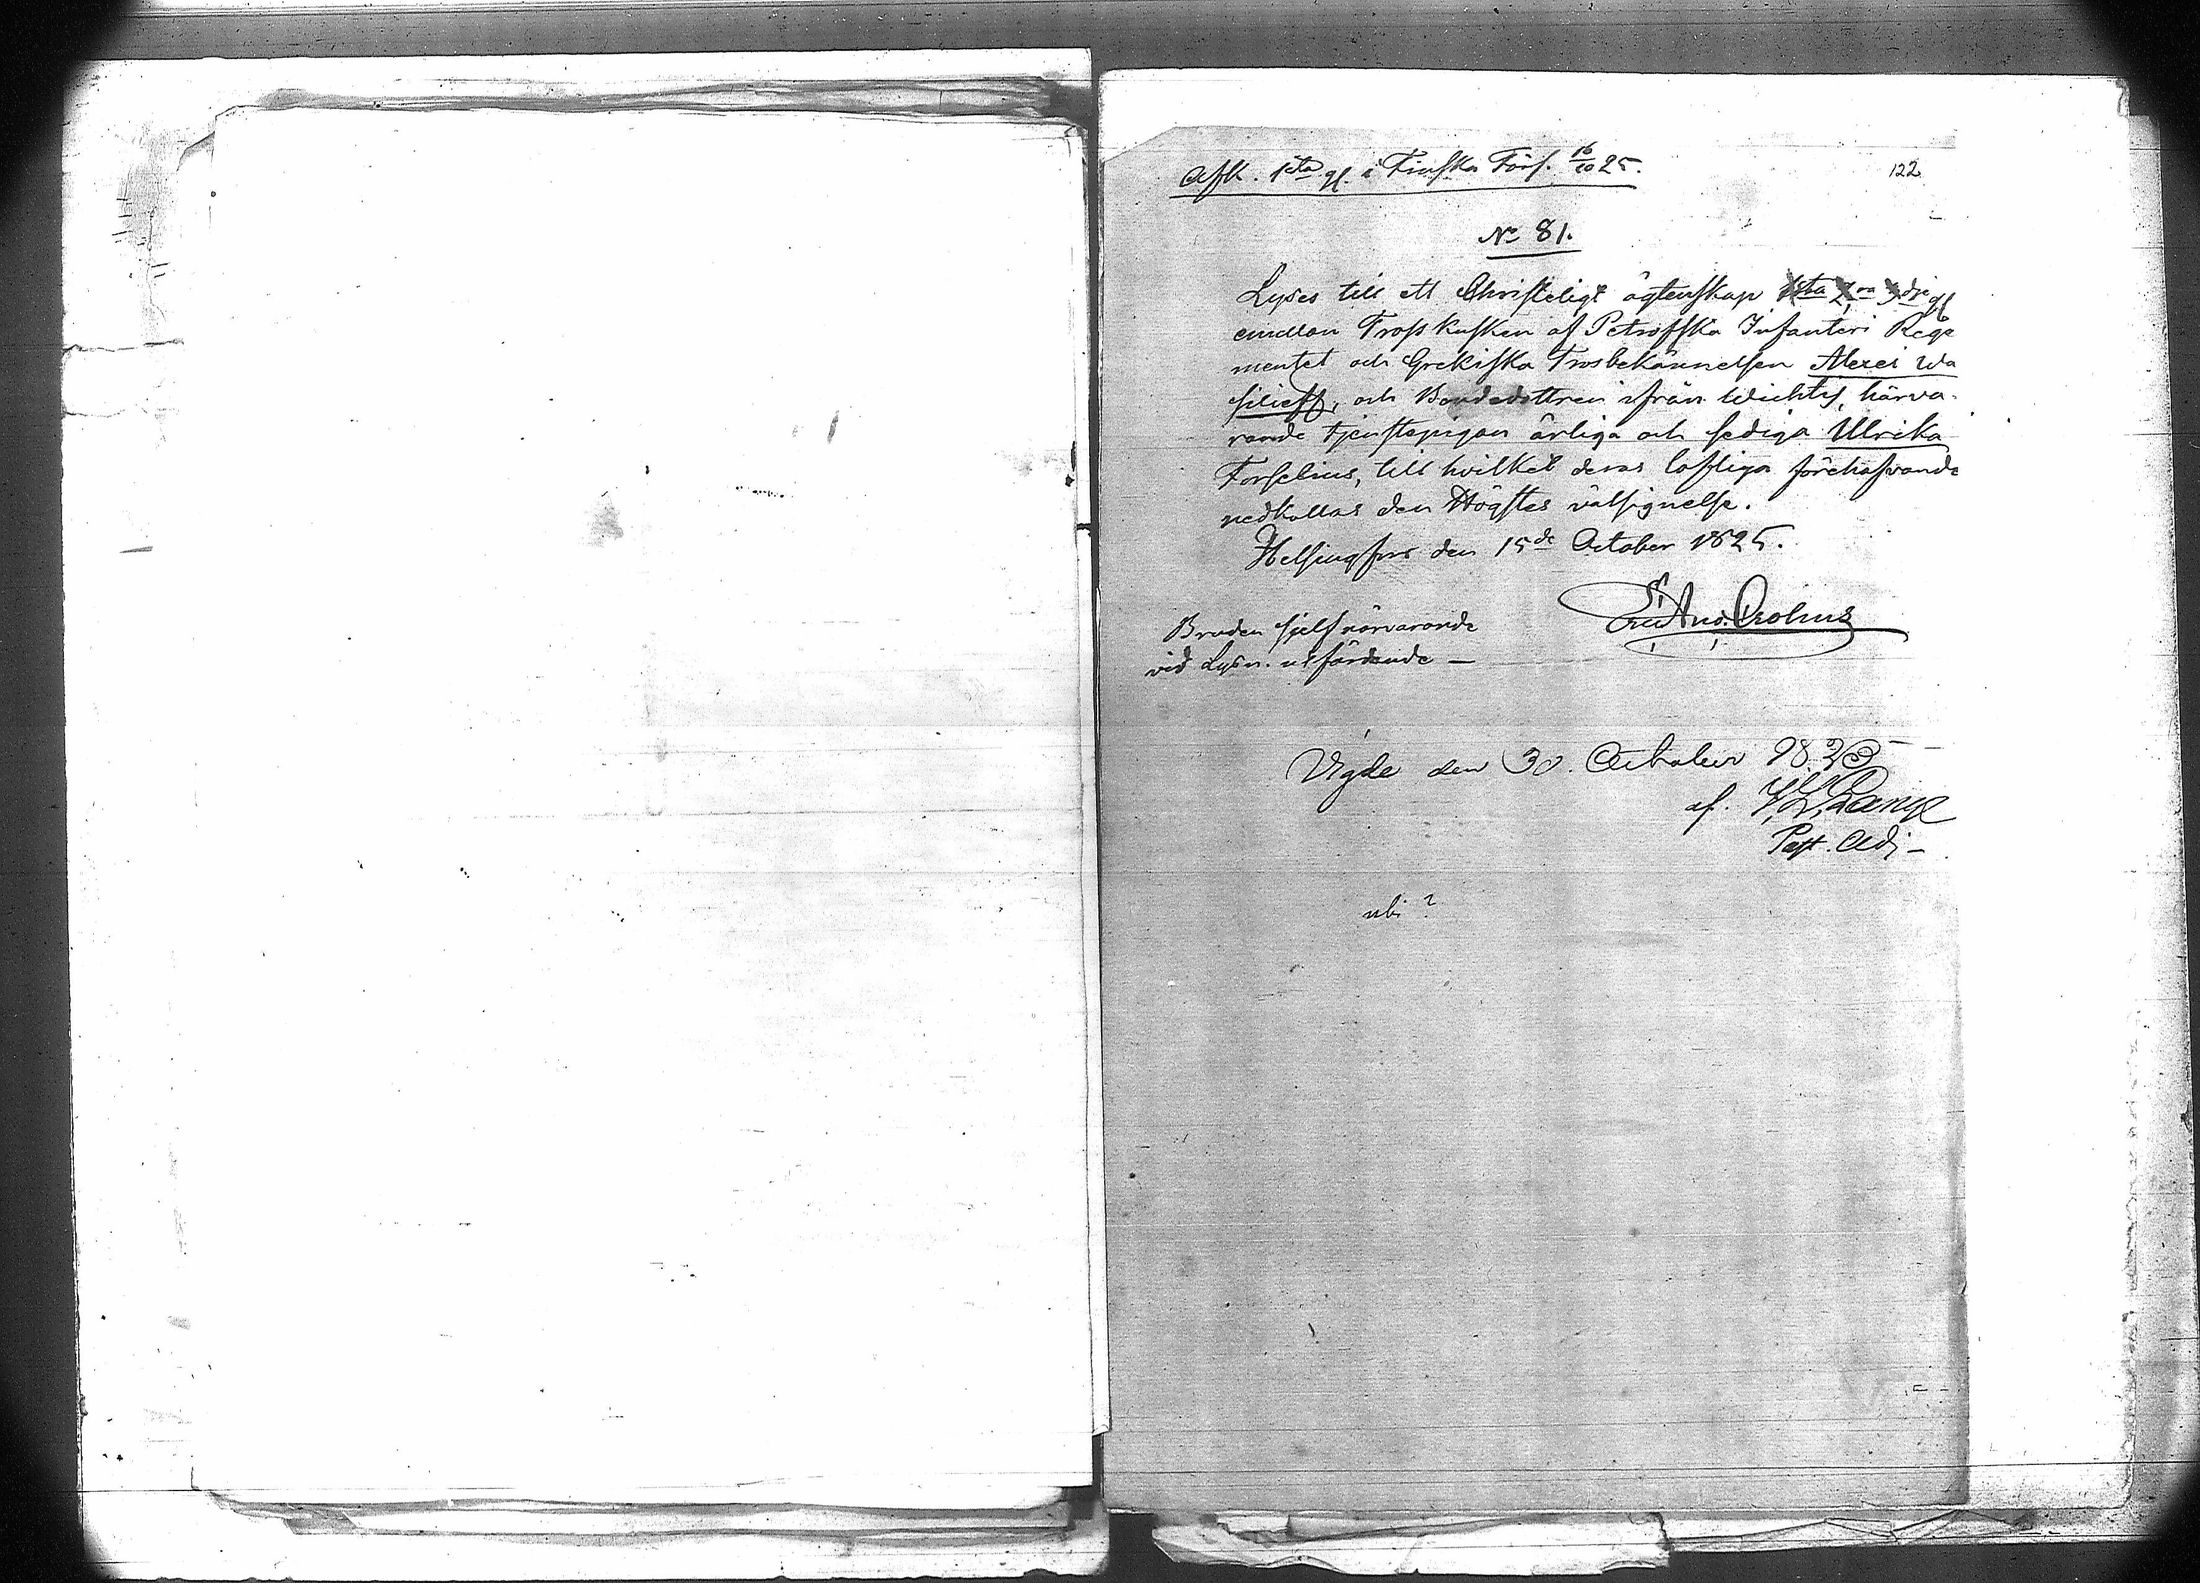 Afk. 1sta g. i Finska Förs. 16/10 25.
122
No 81.
Lyses till ett Christeligt ägtenskap 1sta 2ra 3dje g
emellan Trosskusken af Petroffska Infanteri Rege
mentet och Grekiska Trosbekännelsen Alexei Wa
silieff, och Bondedottren ifrån Wichtis, härva-
rande tjenstepigan ärliga och sediga Ulrika
Forselius, till hvilket deras lofliga förehafvande
nedkallas den Högstes välsignelse.
Helsingfors den 15de October 1825.
Bruden sjelf närvarande
vid Lysn. utfärdande —
Vigde den 30. October 1825
af. Lange
Past. Adj—
ubi?